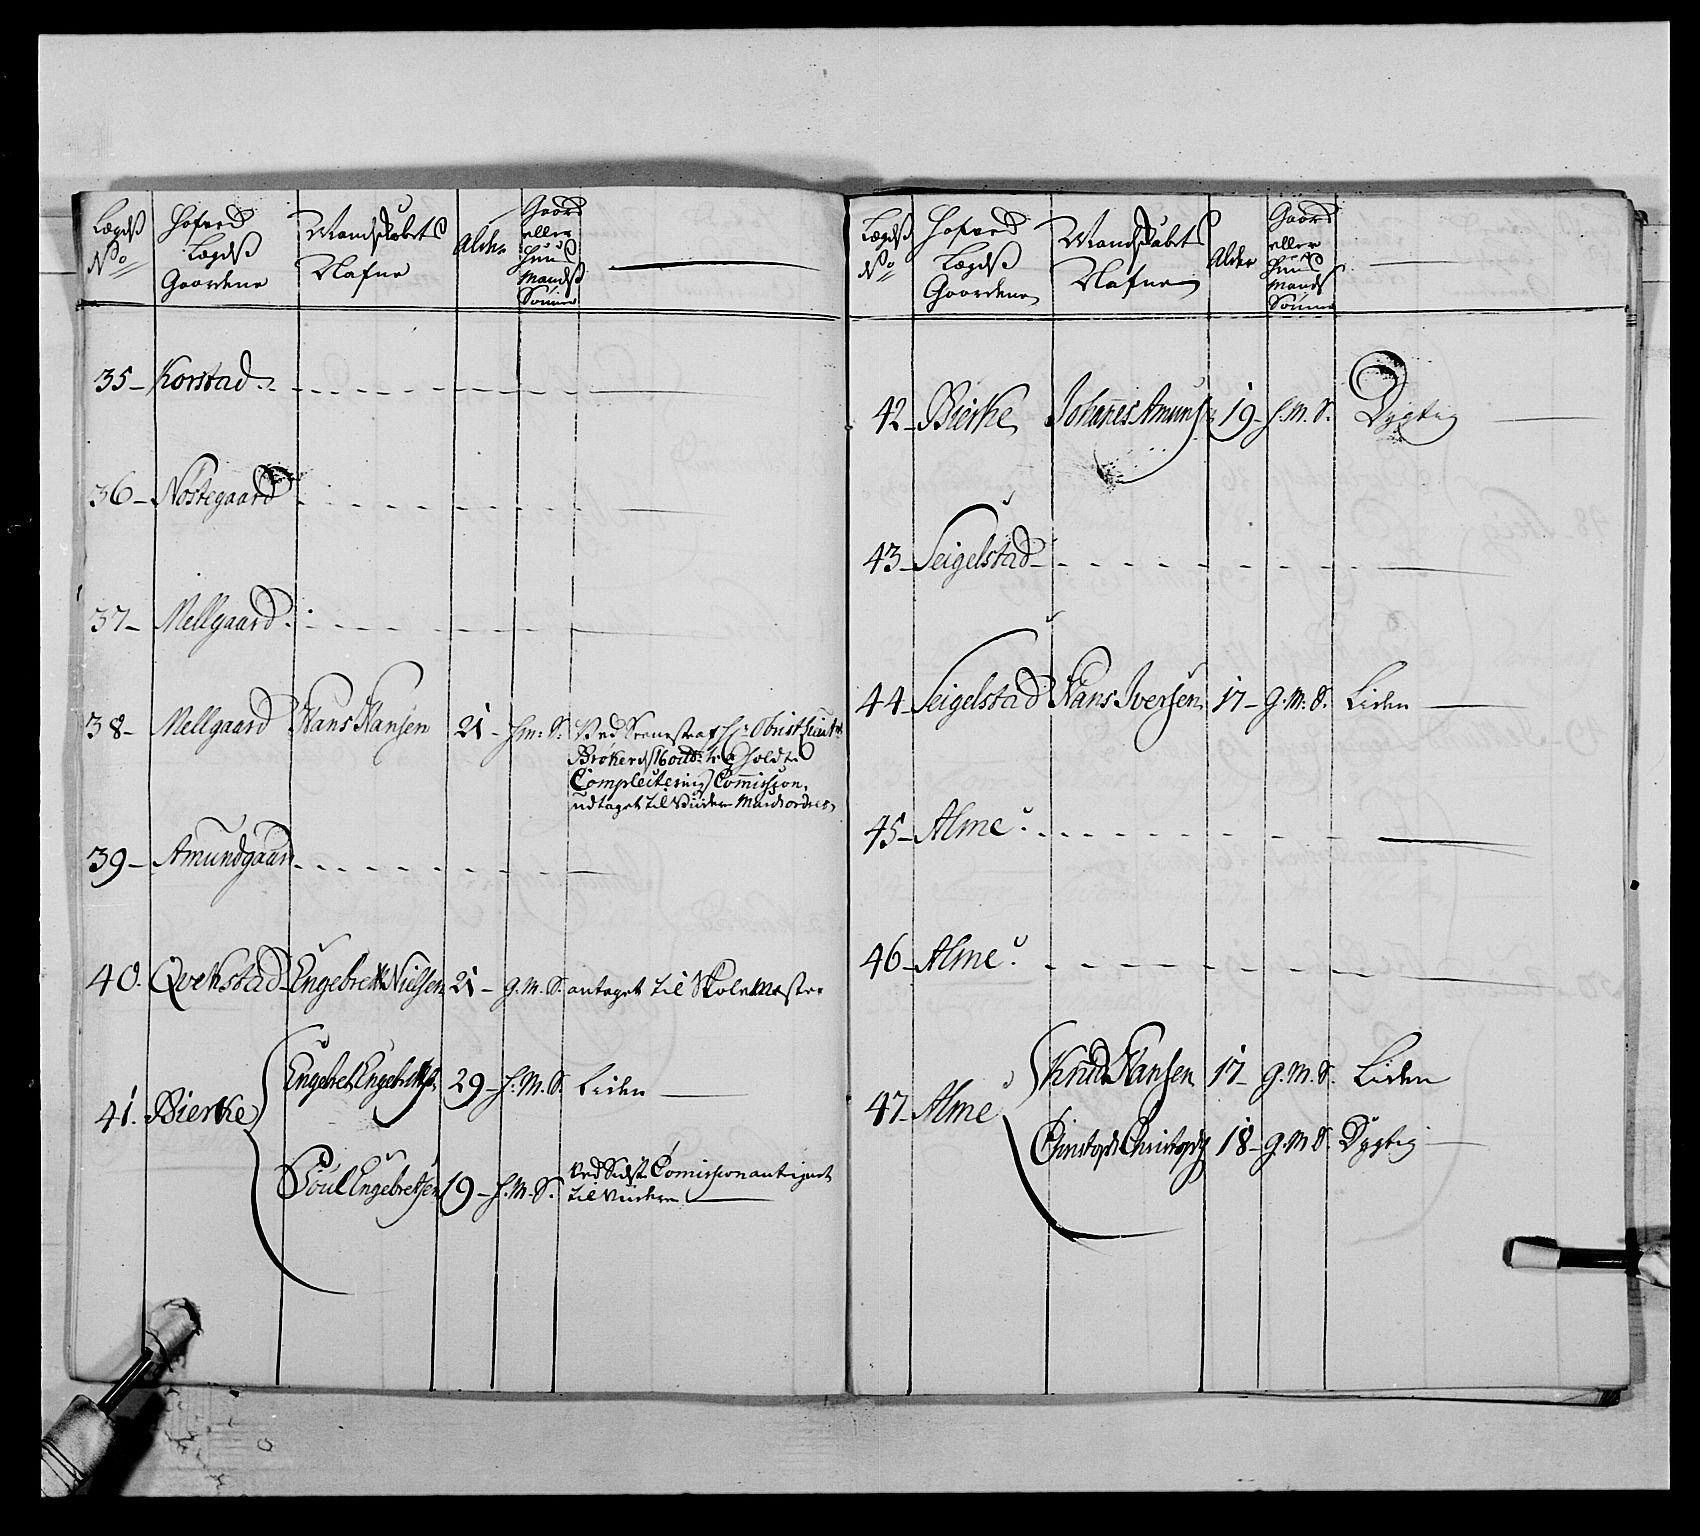 Lægds No | Hofved Lægds Gaardene | Mandskabets Nafne | Alder | Gaard eller Huus Mands Sønner
35 – Korstad
36 – Nostegaard
37 – Mellgaard
38 – Mellgaard | Hans Hansen | 21 – | H.M.S. | Ved
Compleuterings Commission,
udtaget til
39 – Amundgaar
40. Qvekstad | Engebret Nielsen | 21 – | G.M.S. | antaget til Skolemester
41. Bierke | Engebret Engebretsen | 29 – | H.M.S. | Liden
Poul Engebretsen | 19 – | H.M.S. | Ved Sidste Comission antegnet
til
Lægds No | Hofved Lægds Gaardene | Mandskabets Nafne | Alder | Gaard eller Huus Mands Sønner
42 – Bierke | Johanes Amunds | 19 – | H.M.S. | Dygtig
43 – Seigelstad
44 Seigelstad | Hans Iversen | 17 – | G.M.S. | Liden
45 – Alme
46 – Alme
47 – Alme | Knud Hansen | 17 – | G.M.S. | Liden
Christoph Christophs | 18 – | G.M.S. | Dygtig